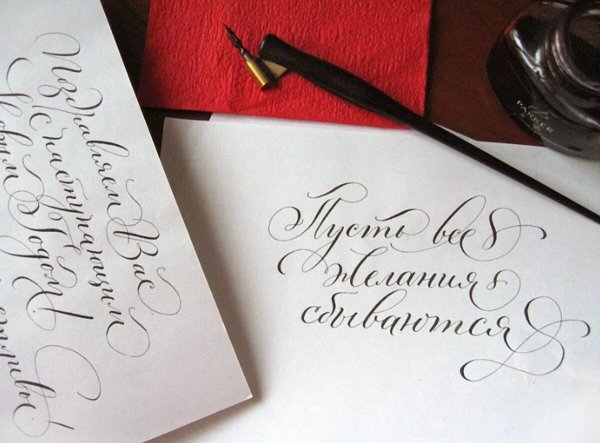 Поздравляем Вас
с наступающим
Новым Годом!
Пусть все
желания
сбываются
PARKER